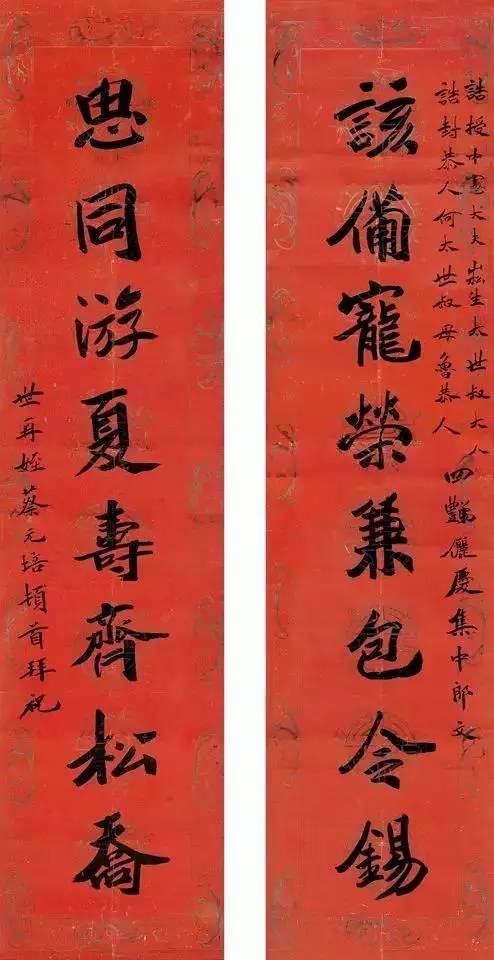 誥授中憲大夫崧生太世叔大人
誥封恭人何太世叔母魯恭人
四儷慶集中郎文
該備寵榮兼包令錫
思同游夏壽齊松喬
世再姪蔡元培頓首拜祝